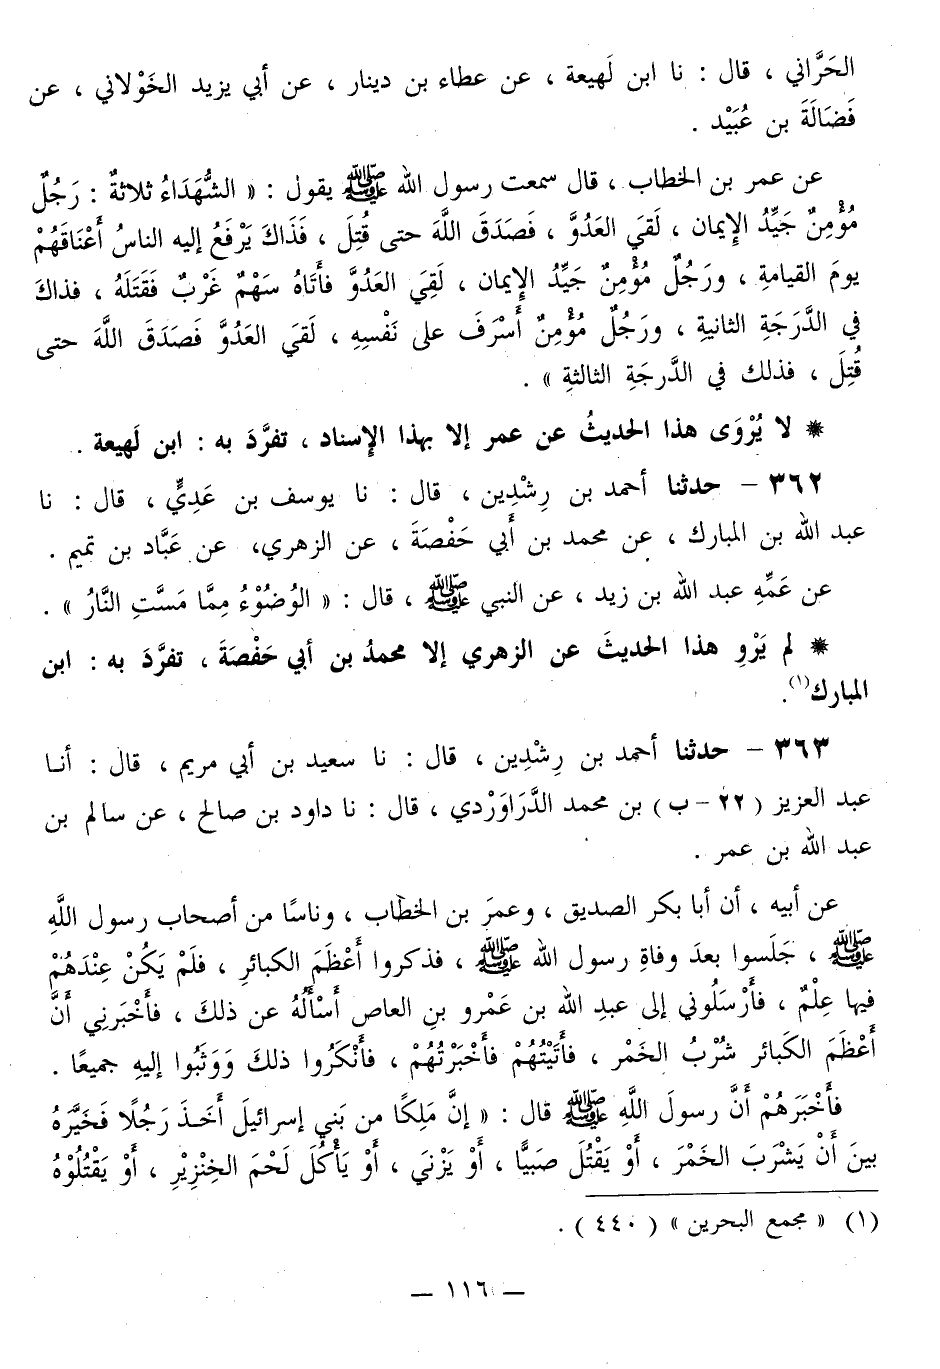 الحَرَّاني ، قال : نا ابن لَهيعة ، عن عطاء بن دينار ، عن أبي يزيد الخَوْلاني ، عن
فَضَالَةَ بن عُبَيْد .
عن عمر بن الخطاب ، قال سمعت رسول الله ﷺ يقول : « الشُّهَدَاءُ ثلاثةٌ : رَجُلٌ
مُؤْمِنٌ جَيِّدُ الإِيمان ، لَقيَ العَدُوَّ ، فَصَدَقَ اللَّهَ حتى قُتِلَ ، فَذَاكَ يَرْفَعُ إليه الناسُ أَعْنَاقَهُمْ
يومَ القيامةِ ، ورَجُلٌ مُؤْمِنٌ جَيِّدُ الإِيمان ، لَقِيَ العَدُوَّ فأَتَاهُ سَهْمٌ غَرْبٌ فَقَتَلَهُ ، فذاكَ
في الدَّرَجَةِ الثانيةِ ، ورَجُلٌ مُؤْمِنٌ أَسْرَفَ على نَفْسِهِ ، لَقيَ العَدُوَّ فَصَدَقَ اللَّهَ حتى
قُتِلَ ، فذلك في الدَّرجَةِ الثالثةِ » .
* لا يُرْوَى هذا الحديثُ عن عمر إلا بهذا الإِسناد ، تفرَّدَ به : ابن لَهيعة .
٣٦٢ – حدثنا أحمد بن رِشْدِين ، قال : نا يوسف بن عَدِيٍّ ، قال : نا
عبد الله بن المبارك ، عن محمد بن أَبي حَفْصَةَ ، عن الزهري، عن عَبَّاد بن تميم .
عن عَمِّهِ عبد الله بن زيد ، عن النبي ﷺ ، قال : « الوُضُوْءُ مِمَّا مَسَّتِ النَّارُ » .
* لم يَرْوِ هذا الحديثَ عن الزهري إلا محمدُ بن أبي حَفْصَةَ ، تفرَّدَ به : ابن
المبارك(١).
٣٦٣ – حدثنا أحمد بن رِشْدِين ، قال : نا سعيد بن أبي مريم ، قال : أنا
عبد العزيز ( ٢٢ – ب ) بن محمد الدَّرَاوَرْدي ، قال : نا داود بن صالح ، عن سالم بن
عبد الله بن عمر .
عن أبيه ، أن أبا بكر الصديق ، وعمرَ بن الخطاب ، وناسًا من أصحاب رسول اللَّهِ
ﷺ ، جَلَسوا بعدَ وفاةِ رسول الله ﷺ ، فذكروا أَعْظَمَ الكبائرِ ، فلَمْ يَكُنْ عِنْدَهُمْ
فيها عِلْمٌ ، فأَرْسَلُوني إلى عبدِ الله بن عَمْرو بنِ العاص أَسْأَلُهُ عن ذلكَ ، فأَخْبَرنِي أَنَّ
أَعْظَمَ الكَبائر شُرْبُ الخَمْر ، فأَتَيْتُهُمْ فأَخْبَرْتُهُمْ ، فأَنْكَرُوا ذلكَ وَوَثَبُوا إليهِ جميعًا .
فأَخْبَرَهُمْ أَنَّ رسولَ اللَّهِ ﷺ قال : « إنَّ مَلِكًا من بَنِي إسرائيلَ أَخَذَ رَجُلًا فَخَيَّرَهُ
بينَ أَنْ يَشْرَبَ الخَمْرَ ، أَوْ يَقْتُلَ صَبيًّا ، أَوْ يَزْنيَ ، أَوْ يَأْكُلَ لَحْمَ الخِنْزِيْرِ ، أَوْ يَقْتُلُوْهُ
(١) « مجمع البحرين » ( ٤٤٠ ) .
— ١١٦ —